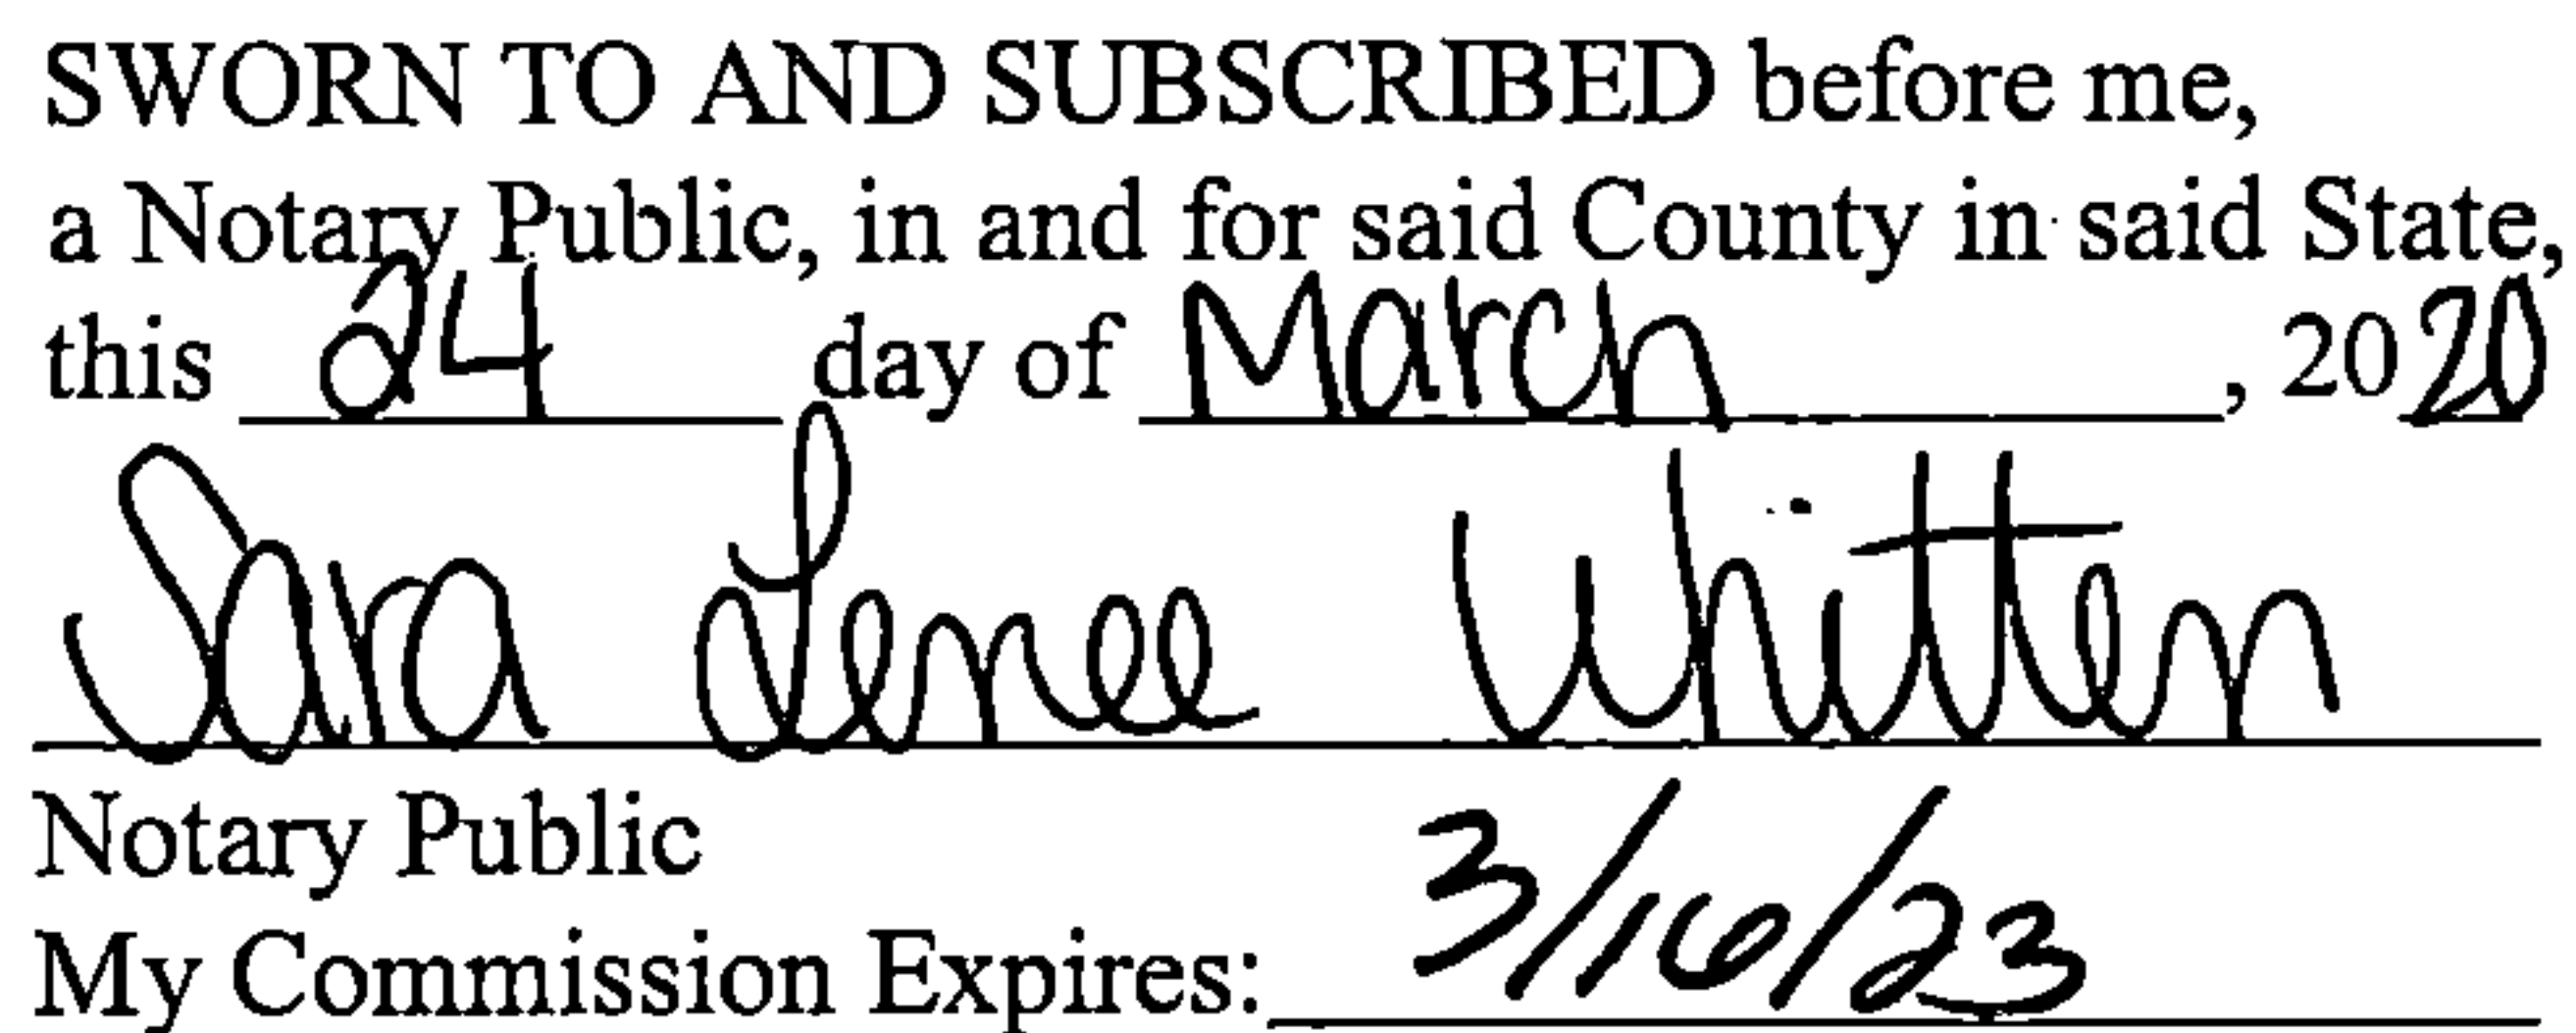 SWORN TO AND SUBSCRIBED before me,
a Notary Public, in and for said County in said State,
this 24 day of March, 2020
Sara Lenee Whitten
Notary Public
My Commission Expires: 3/16/23